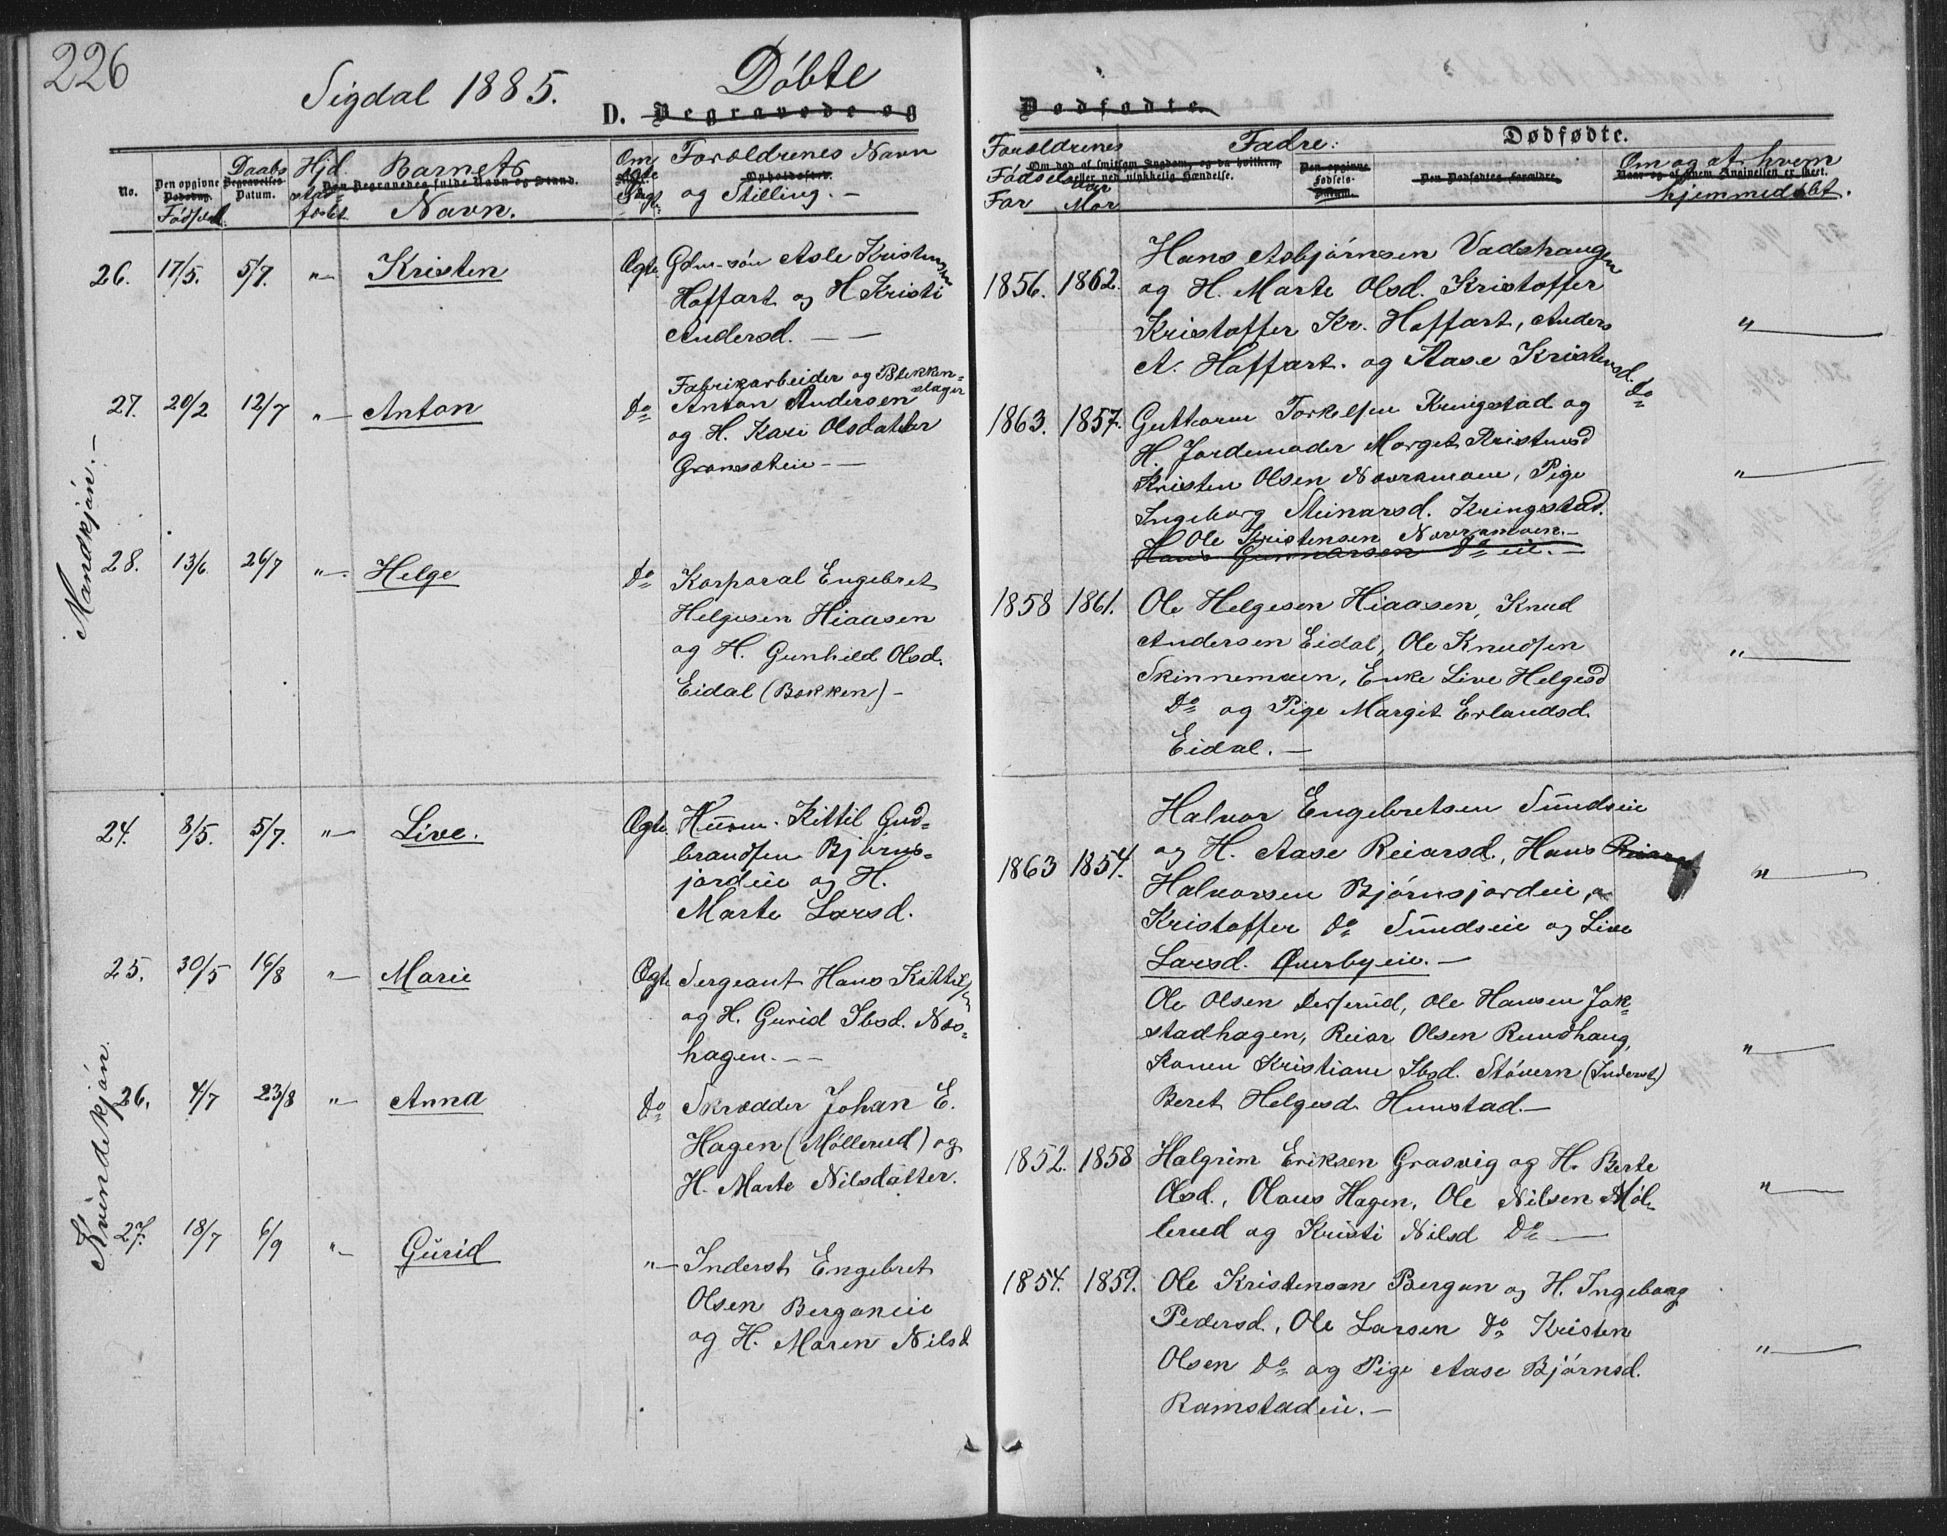 226
Sigdal 1885.
Döbte
D. Begravede og
Dødfødte.
No.
Den opgivne
Dødsdag.
Födsel.
Daabs
Begravelses-
Datum.
Hjd
födt.
Barnets
Den Begravedes fulde Navn og Stand.
Navn.
Om
Ægte
Forældrenes Navn
Opholdssted.
og Stilling. —
Forældrenes
Födselsaar
Far Mor
Om død af smitsom Sygdom, og da hvilken,
eller ved ulykkelig Hændelse.
Fadre:
Den opgivne
Fødsels-
Datum.
Dødfødte.
Den Dødfødtes Forældre.
Om og af hvem
Naar og af hvem Anginelsen er skeet.
hjemmedöbt.
Mandkjön. —
26. 17/5. 5/7. "— Kristen
Ægte Gdm-sön Asle Kristensen
Hoffart og H. Kristi
Andersd. — —
1856. 1862.
Hans Asbjörnsen Vadshaugen
og H. Marte Olsd. Kristoffer
Kristoffer Kr. Hoffart, Anders
A. Hoffart. og Aase Kristensd. Do
"—
27. 20/2 12/7 "— Anton
Do Fabrikarbeider og Blikken-
slager
Anton Andersen
og H. Kari Olsdatter
Gronsæteie — —
1863. 1857.
Guttorm Torkelsen Kringstad og
H. Jordemoder Marget Kristensd
Kristen Olsen Nordremoen, Pige
Ingeborg Steinarsd. Kringstad.
Ole Kristensen Nordremoen. —
Hans Gunnarsen Do eie. —
"—
28. 13/6. 26/7 "—. Helge
Do Korporal Engebret
Helgesen Hiaasen
og H. Gunhild Olsd.
Eidal (Bakken) —
1858 1861.
Ole Helgesen Hiaasen, Knud
Andersen Eidal, Ole Knudsen
Skinnemoen, Enke Live Helgesd
Do og Pige Margit Erlandsd.
Eidal. —
"—
Kvindekjön.
24. 8/5. 5/7. "— Live.
Ægte Husm. Kittil Gud-
brandsen Björns-
jordeie og H.
Marte Larsd.
1863 1854.
Halvor Engebretsen Sundseie
og H. Aase Reiarsd., Hans
Halvorsen Björnsjordeie,
Kristoffer Do Sundseie og Live
Larsd. Överbyeie. —
"—
25. 30/5 16/8 "— Marie
Ægte Sergeant Hans Kittilsen
og H. Gurid Ibsd. Næs-
hagen. — —
Ole Olsen, Ole Hansen Jok-
stadhagen, Reiar Olsen Rundhaug,
Konen Kristiane Ibsd. Stövern (Inderst)
Beret Helgesd. Hunstad. —
"—
26. 4/7 23/8 "— Anna
Do Skrædder Johan E.
Hagen (Möllerud) og
H. Marte Nilsdatter.
1852. 1858
Halgrim Eriksen Grasvig og H. Berte
Olsd., Olaus Hagen, Ole Nilsen Möl-
lerud og Kristi Nilsd Do —
"—
27. 18/7 6/9 "— Gurid
"— Inderst Engebret
Olsen Berganeie
og H. Maren Nilsd
1854. 1859.
Ole Kristensen Bergan og H. Ingeborg
Pedersd., Ole Larsen Do Kristen
Olsen Do og Pige Aase Björnsd.
Ramstadeie. —
"—